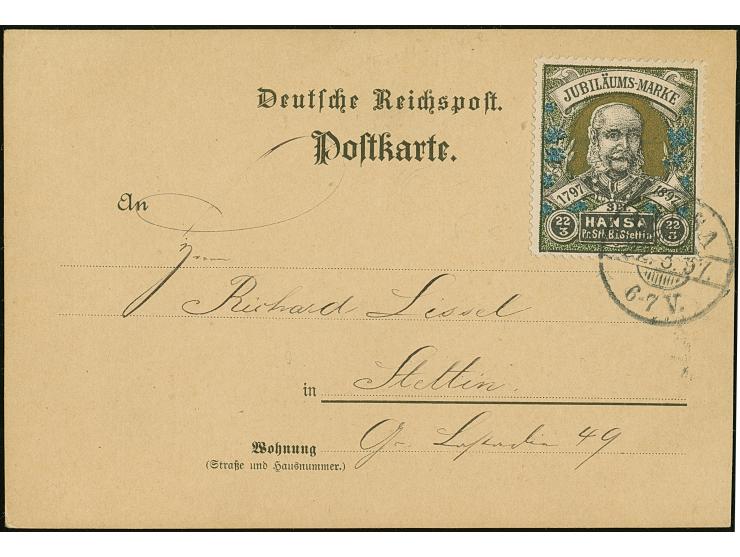 Deutsche Reichspost.
Postkarte.
JUBILÄUMS-MARKE
1797 1897
3 Pf.
22/3 HANSA 22/3
Pr. St. B. i. Stettin
22. 3. 97.
6-7 V.
An
Richard Lissel
in Stettin.
Wohnung Gr. Lastadie 49
(Straße und Hausnummer.)